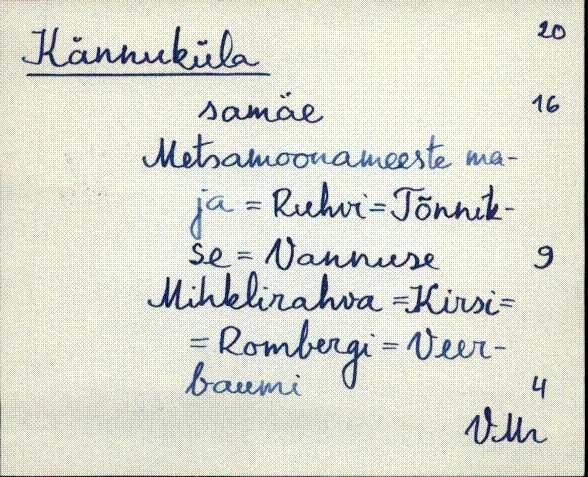 Kännuküla 20
samäe 16
Metsamoonameeste ma-
ja = Ruhvi = Tõnnik-
se = Vannuse 9
Mihklirahva = Kirsi =
= Rombergi = Veer-
baumi 4
VMr